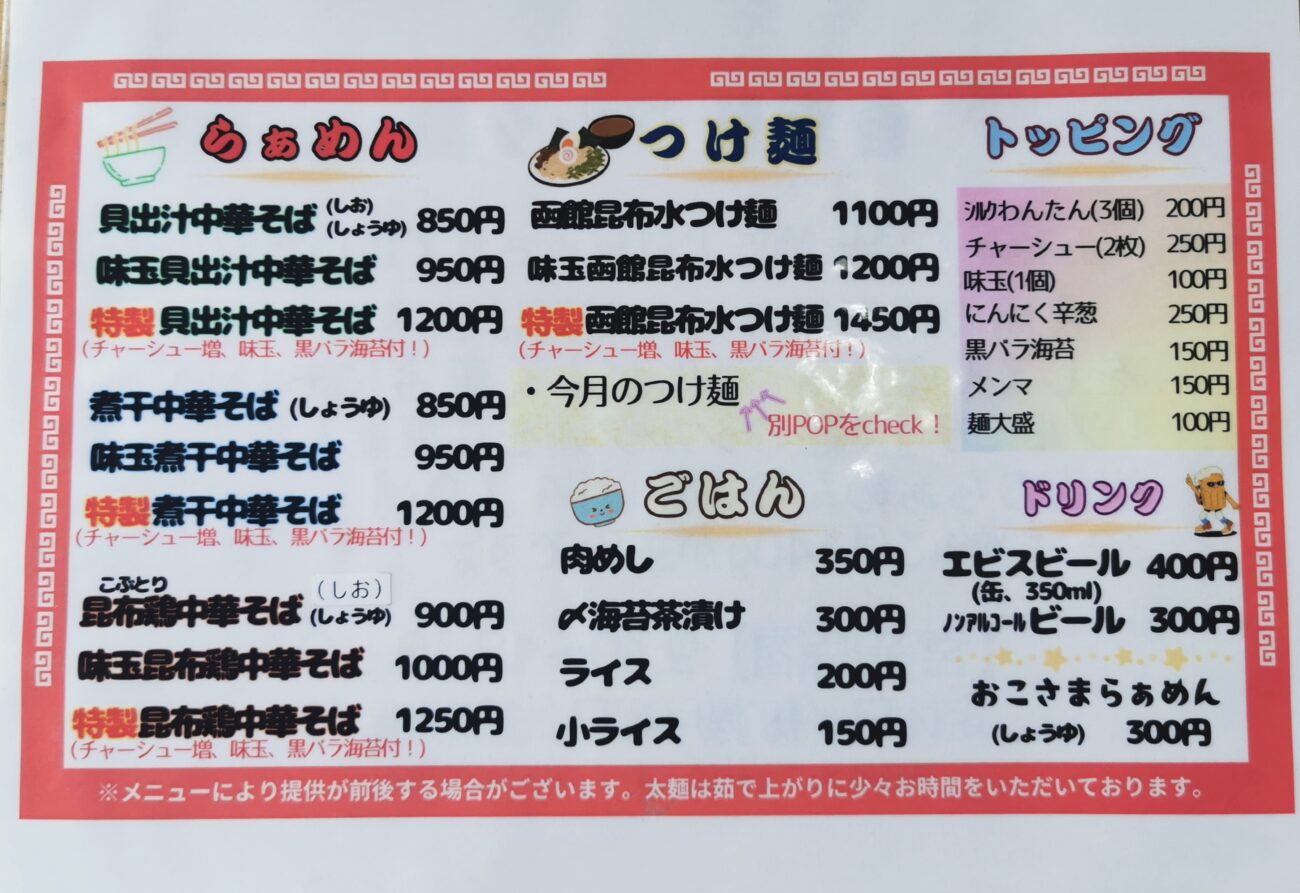 らぁめん
貝出汁中華そば (しお) (しょうゆ) 850円
味玉貝出汁中華そば 950円
特製貝出汁中華そば 1200円
(チャーシュー増、味玉、黒バラ海苔付！)
煮干中華そば (しょうゆ) 850円
味玉煮干中華そば 950円
特製煮干中華そば 1200円
(チャーシュー増、味玉、黒バラ海苔付！)
こぶとり
昆布鶏中華そば (しお) (しょうゆ) 900円
味玉昆布鶏中華そば 1000円
特製昆布鶏中華そば 1250円
(チャーシュー増、味玉、黒バラ海苔付！)
つけ麺
函館昆布水つけ麺 1100円
味玉函館昆布水つけ麺 1200円
特製函館昆布水つけ麺 1450円
(チャーシュー増、味玉、黒バラ海苔付！)
・今月のつけ麺
別POPをcheck！
ごはん
肉めし 350円
〆海苔茶漬け 300円
ライス 200円
小ライス 150円
トッピング
ｼﾙｸわんたん(3個) 200円
チャーシュー(2枚) 250円
味玉(1個) 100円
にんにく辛葱 250円
黒バラ海苔 150円
メンマ 150円
麺大盛 100円
ドリンク
エビスビール 400円
(缶、350ml)
ﾉﾝｱﾙｺｰﾙビール 300円
おこさまらぁめん
(しょうゆ) 300円
※メニューにより提供が前後する場合がございます。太麺は茹で上がりに少々お時間をいただいております。